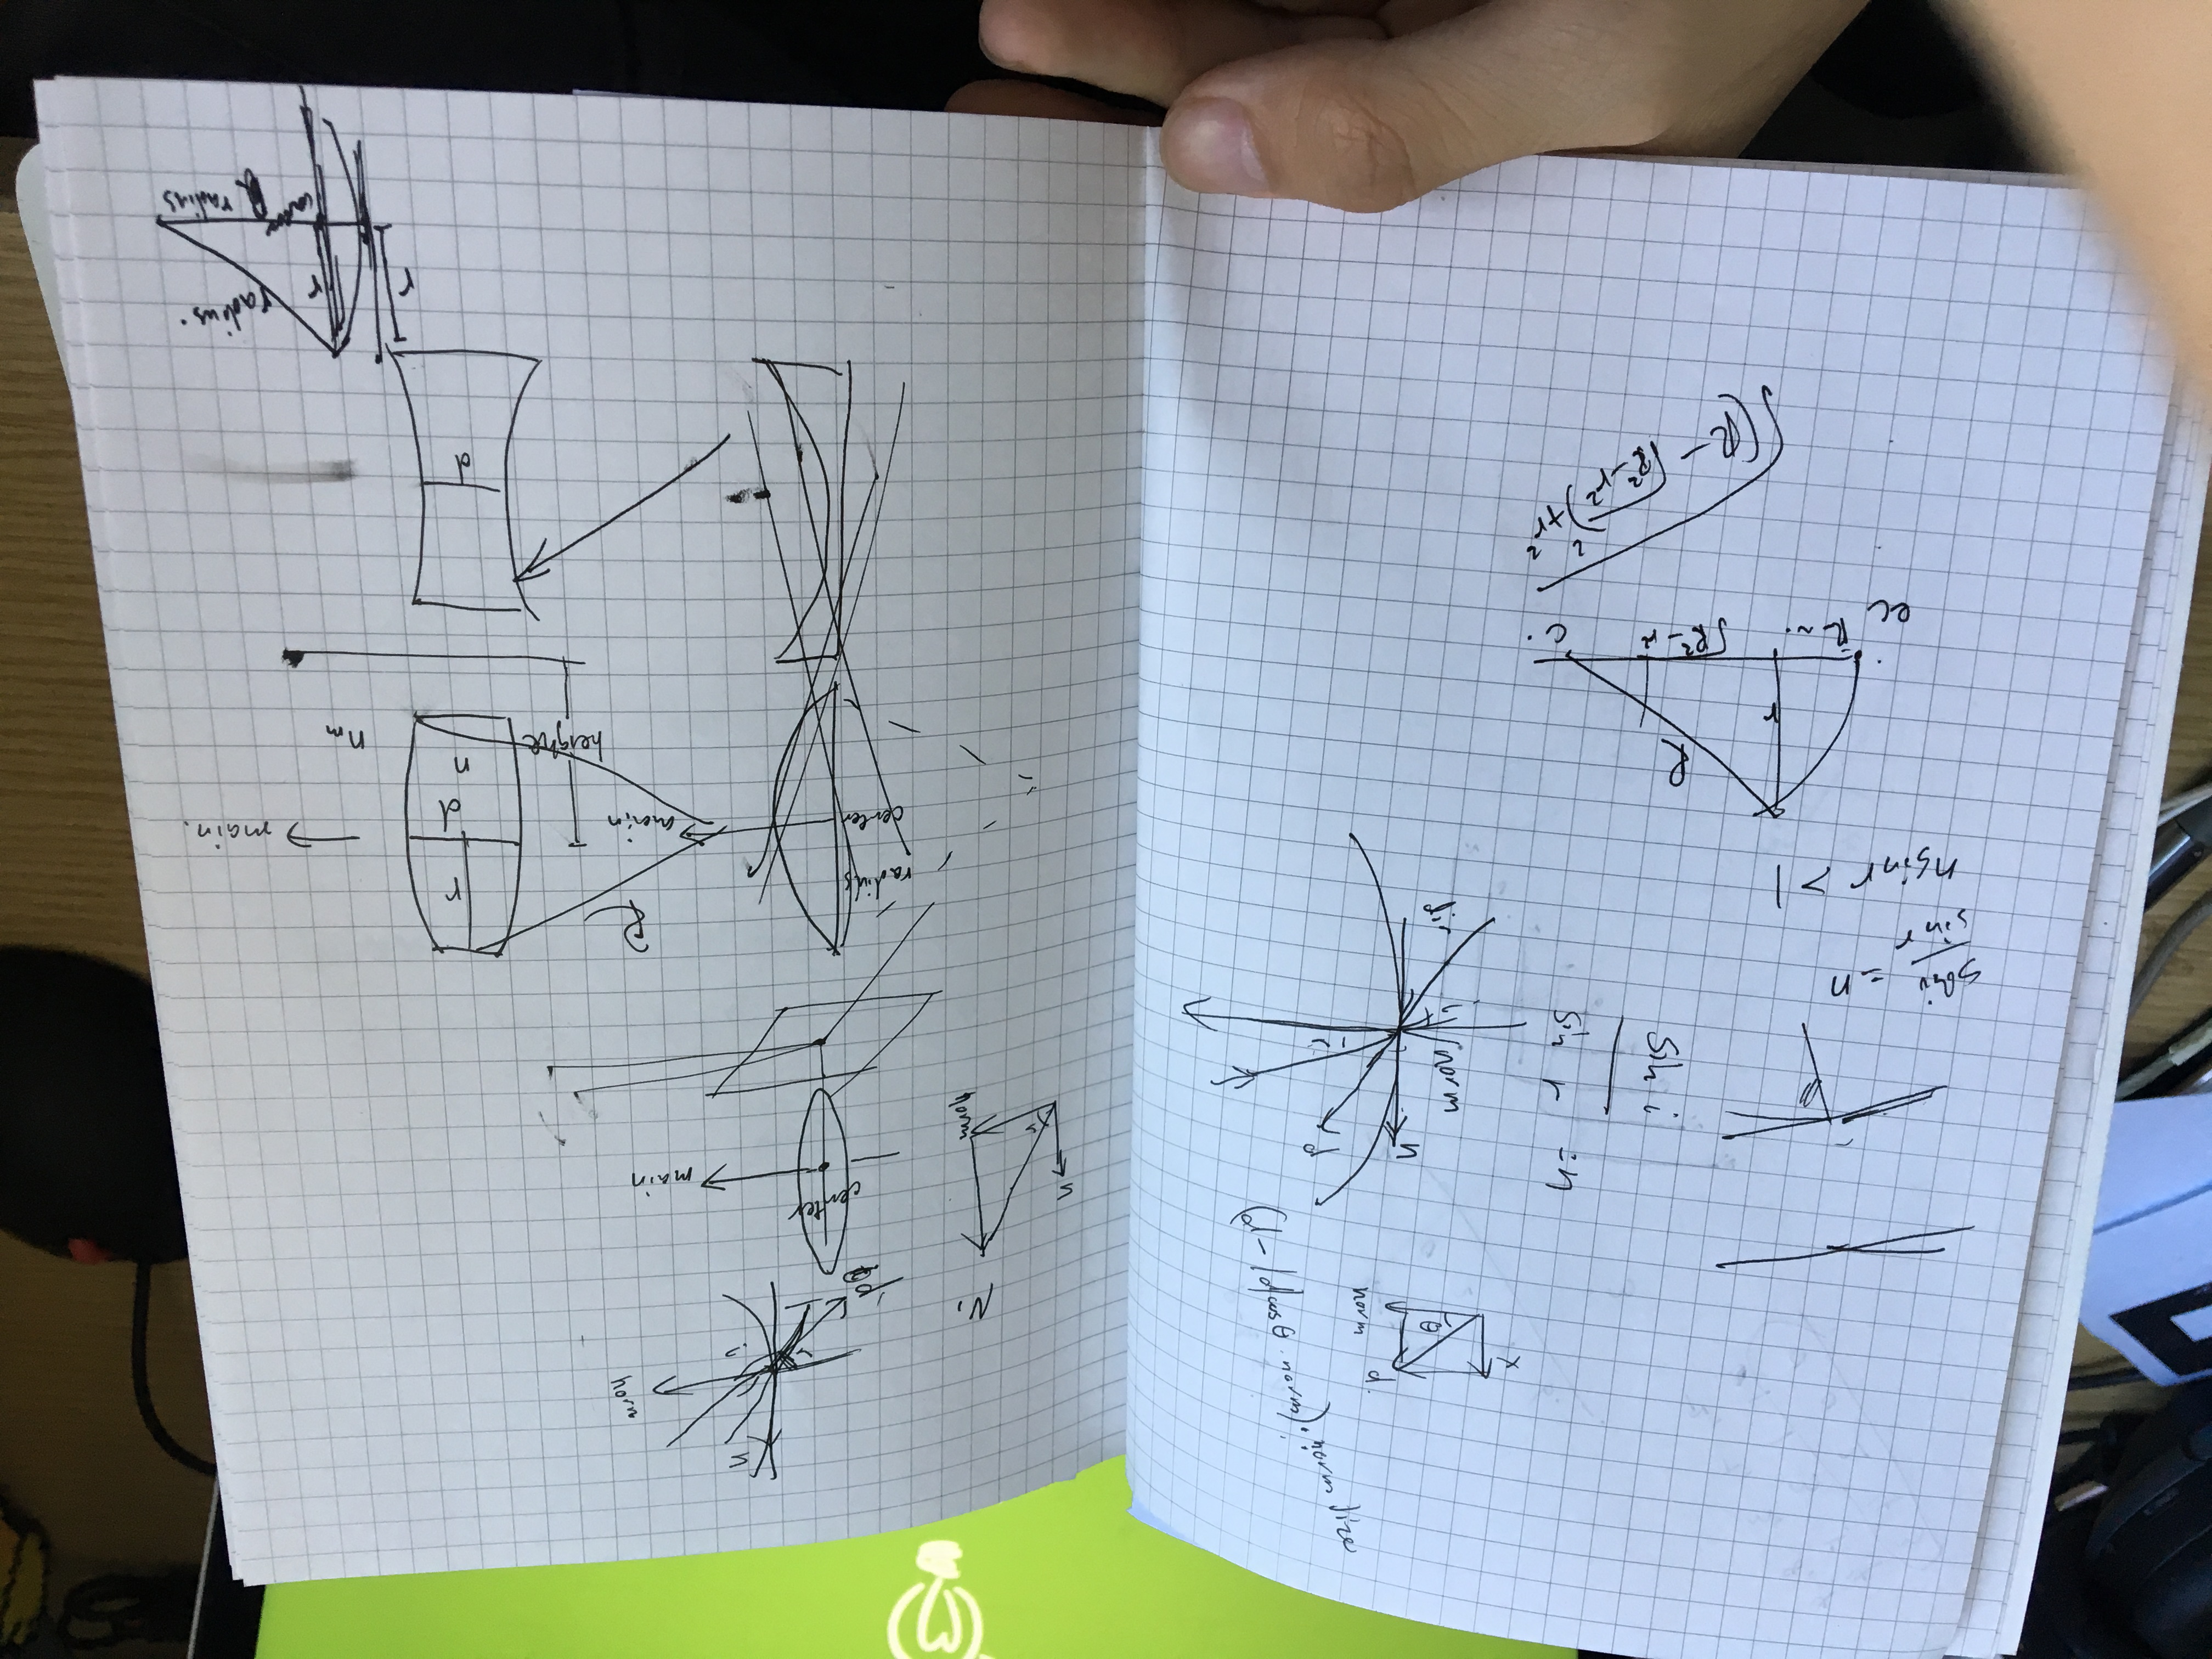 x
d.
θ
norm
(d - |d| cos θ · norm). normalize
sin i
sin r
= n
n
d
norm
r
i
dir
sin i
sin r
= n
n sin r > 1
R
r
ec
√R² - r²
c.
√(R - √R² - r²)² + r²
n
norm
i
r
N,
n
r
norm
center
main
radius
center
main
R
r
d
n
main.
height
n_m
d
r
r
radius.
R radius